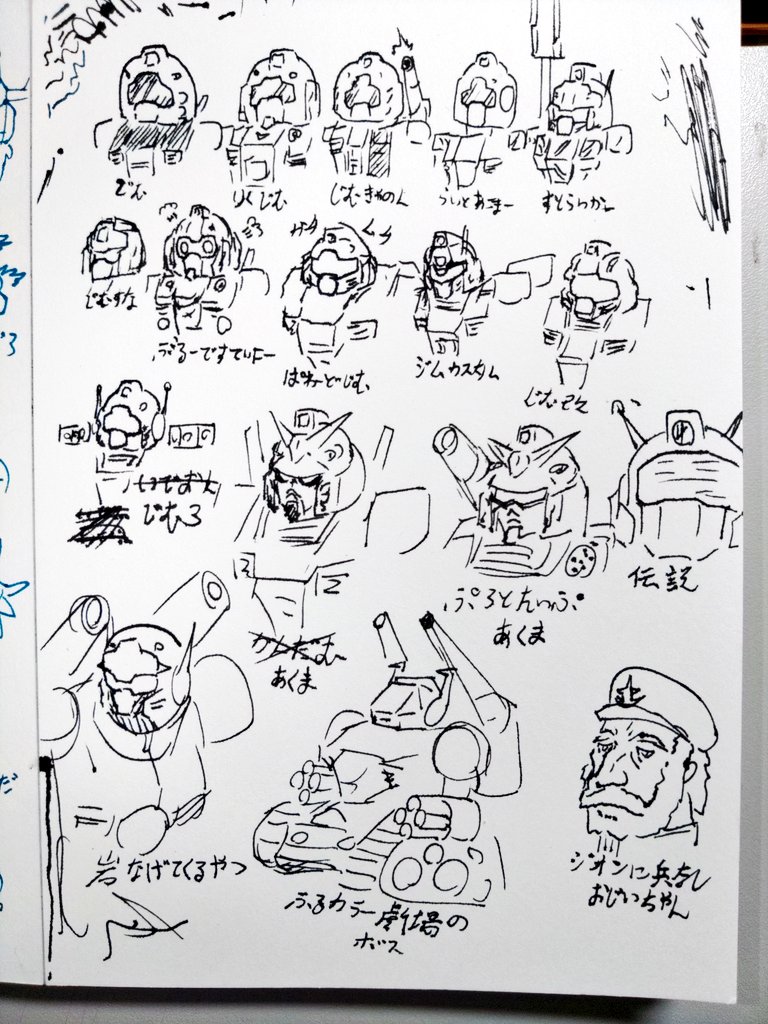 じむ
りくじむ
じむきゃのん
らいとあーまー
すとらいかー
じむすな
ぶるーですてぃにー
ガタ
ムッチ
ぱわーどじむ
ジムカスタム
じむ改
じむ3
がんだむ
あくま
ぷろとたいぷ
あくま
伝説
岩なげてくるやつ
ふるカラー劇場の
ボス
ジオンに兵なし
おじいちゃん